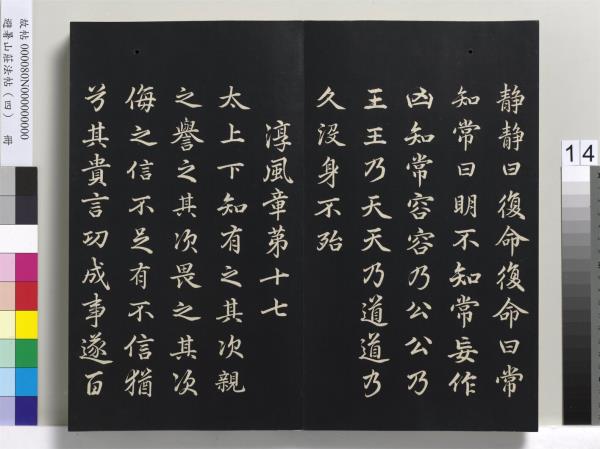 静静曰復命復命曰常
知常曰明不知常妄作
凶知常容容乃公公乃
王王乃天天乃道道乃
久没身不殆
淳風章第十七
太上下知有之其次親
之譽之其次畏之其次
侮之信不足有不信猶
兮其貴言功成事遂百
故帖 000080N000000000
避暑山莊法帖(四) 冊
14